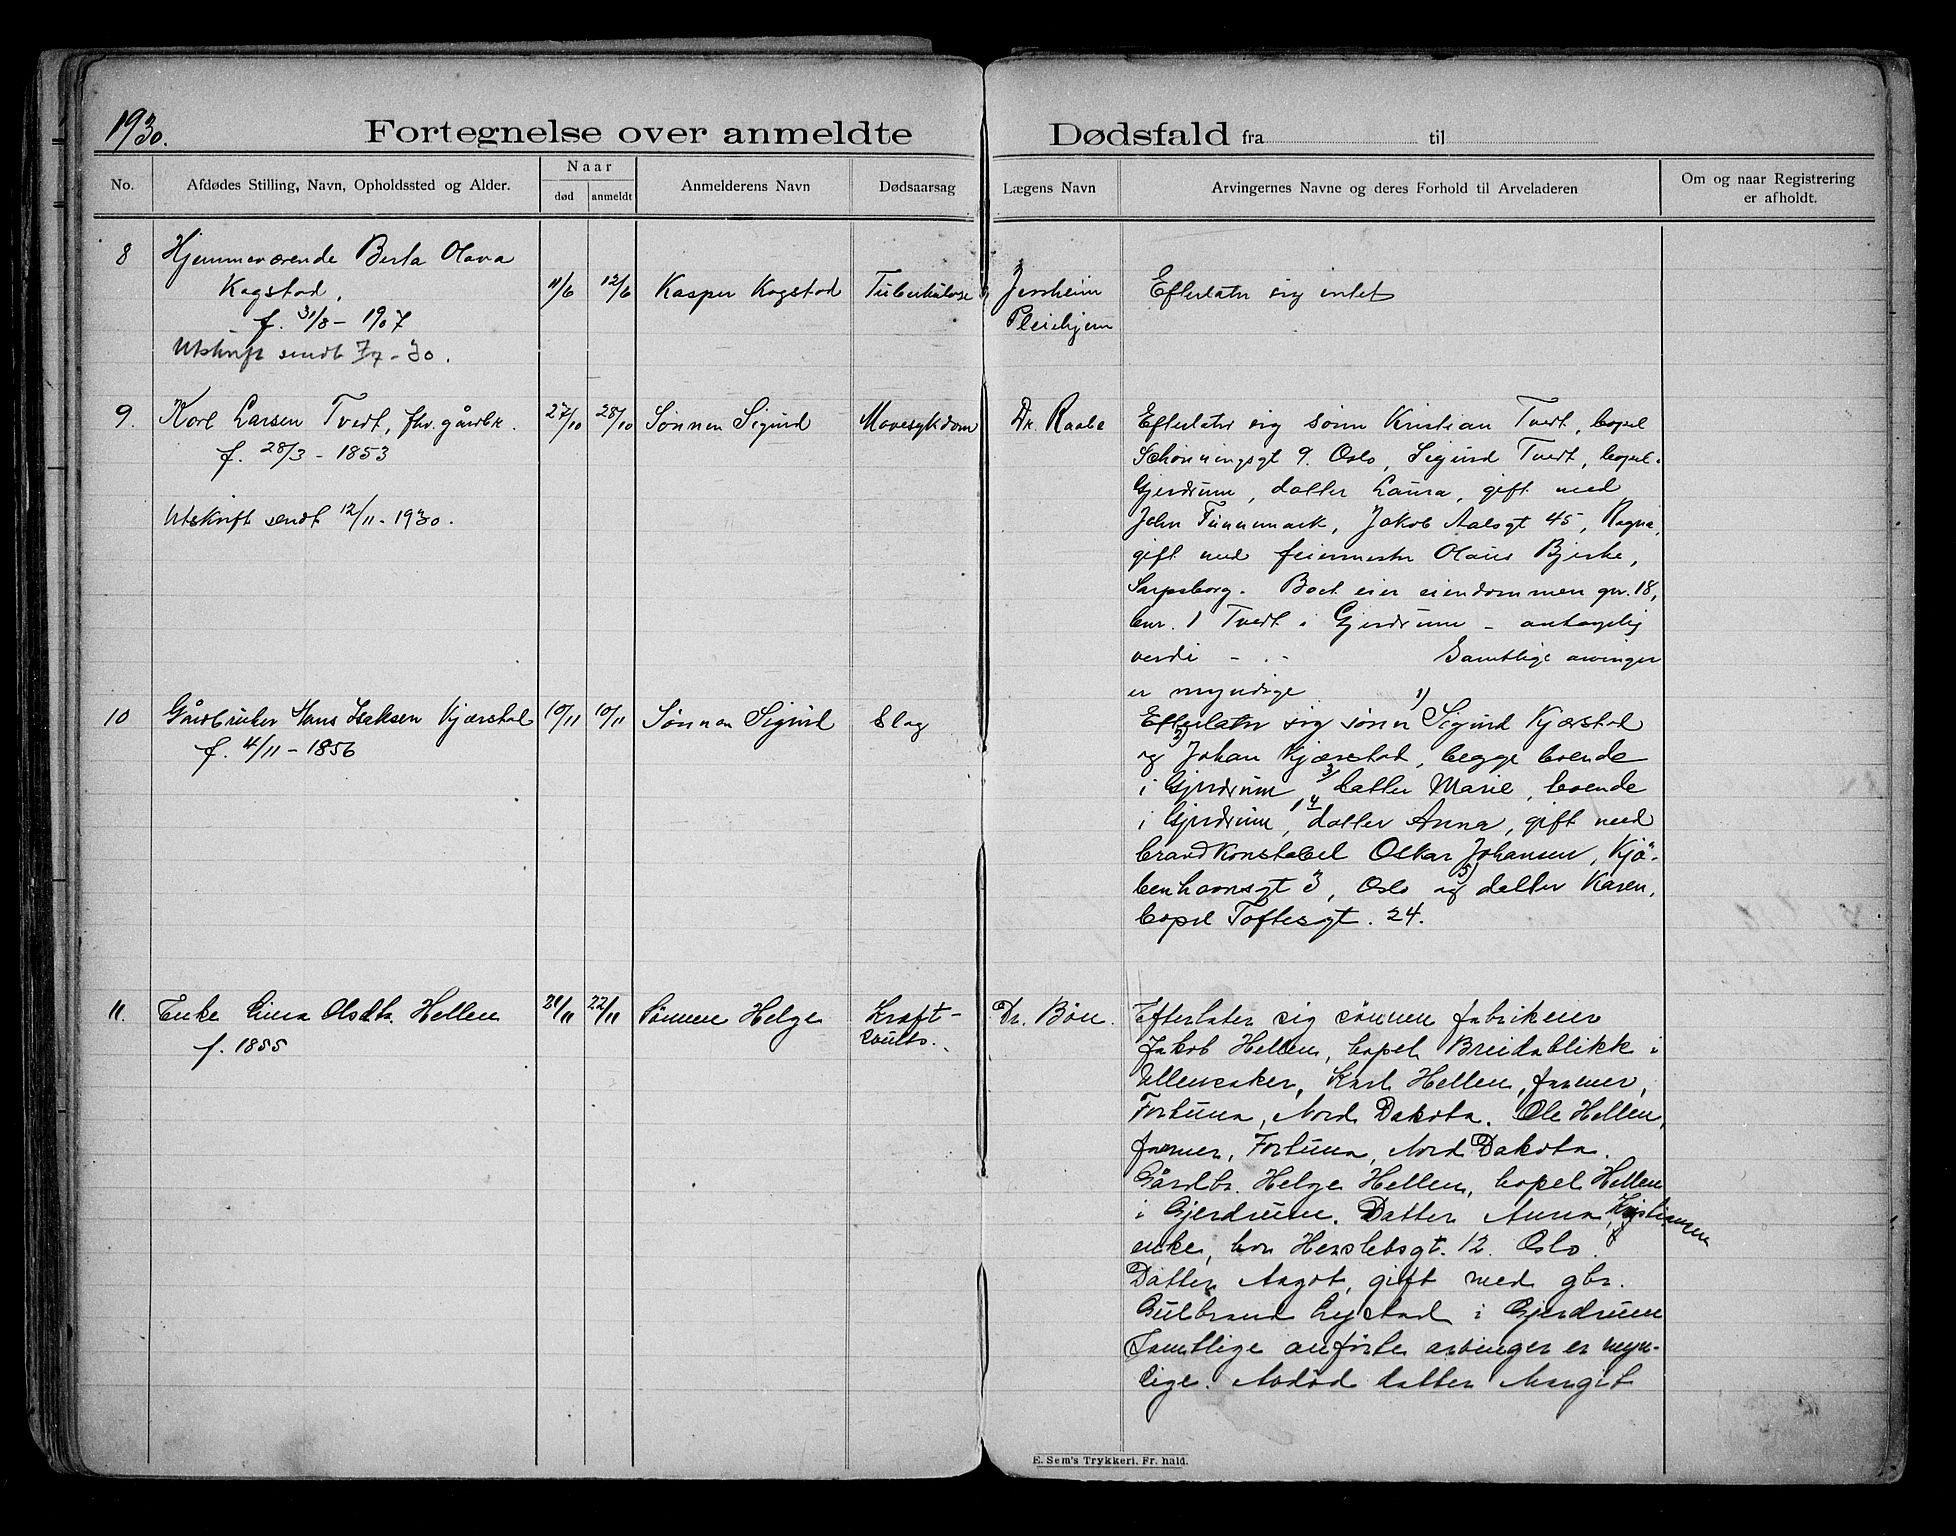 1930.
Fortegnelse over anmeldte Dødsfald fra til
No.
Afdødes Stilling, Navn, Opholdssted og Alder.
Naar
død
anmeldt
Anmelderens Navn
Dødsaarsag
Lægens Navn
Arvingernes Navne og deres Forhold til Arveladeren
Om og naar Registrering
er afholdt.
8
Hjemmeværende Berta Olava
Kogstad,
f. 31/8 - 1907
Utskrift sendt 7/7 - 30.
11/6
12/6
Kasper Kogstad
Tuberkulose
Jessheim
Pleiehjem
Efterlater sig intet
9.
Karl Larsen Tvedt, fhv. gårdbr.
f. 28/3 - 1853
Utskrift sendt 12/11 - 1930.
27/10
28/10
Sønnen Sigurd
Mavesykdom
Dr. Raabe
Efterlater sig sønn Kristian Tvedt, bopel
Schønningsgt 9. Oslo, Sigurd Tvedt, bopel
Gjerdrum, datter Laura, gift med
John Finnmark, Jakob Aalsgt 45, Ragna,
gift med feiermester Olaus Bjerke,
Sarpsborg. Boet eier eiendommen gnr. 18,
bnr. 1 Tvedt i Gjerdrum - antagelig
verdi - . - Samtlige arvinger
er myndige
10
Gårdbruker Hans Isaksen Kjærstad
f. 4/11 - 1856
10/11
10/11
Sønnen Sigurd
Slag
Efterlater sig sønn 1) Sigurd Kjærstad
og 2) Johan Kjærstad, begge boende
i Gjerdrum, 3) datter Marie, boende
i Gjerdrum, 4) datter Anna, gift med
brandkonstabel Oskar Johansen, Kjø-
benhavnsgt 3, Oslo og 5) datter Karen,
bopel Toftesgt. 24.
11.
Enke Lina Olsdtr. Hellen
f. 1855
21/11
22/11
Sønnen Helge
Kreft-
svulst.
Dr. Bøn.
Efterlater sig sønnen fabrikeier
Jakob Hellen, bopel Breidablikk i
Ullensaker, Karl Hellen, farmer,
Fortuna, Nord Dakota. Ole Hellen,
farmer, Fortuna, Nord Dakota.
Gårdbr. Helge Hellen, bopel Hellen
i Gjerdrum. Datter Anna Kristiansen
enke, bor Herslebsgt. 12. Oslo.
Datter Aagot, gift med gbr.
Gulbrand Lystad i Gjerdrum
Samtlige anførte arvinger er myn-
dige. Avdød datter Margit
E. Sem's Trykkeri, Fr. hald.